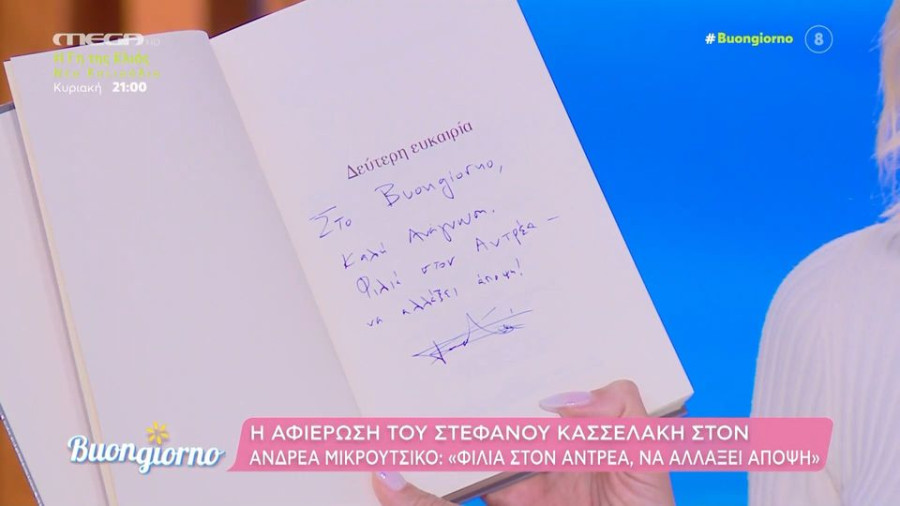 MEGA HD
Η Γη της Ελιάς
Νέο Επεισόδιο
Κυριακή 21:00
#Buongiorno
8
Δεύτερη ευκαιρία
Στο Buongiorno,
Καλή Ανάγνωση.
Φιλιά στον Αντρέα –
να αλλάξει άποψη!
Buongiorno
Η ΑΦΙΕΡΩΣΗ ΤΟΥ ΣΤΕΦΑΝΟΥ ΚΑΣΣΕΛΑΚΗ ΣΤΟΝ
ΑΝΔΡΕΑ ΜΙΚΡΟΥΤΣΙΚΟ: «ΦΙΛΙΑ ΣΤΟΝ ΑΝΤΡΕΑ, ΝΑ ΑΛΛΑΞΕΙ ΑΠΟΨΗ»